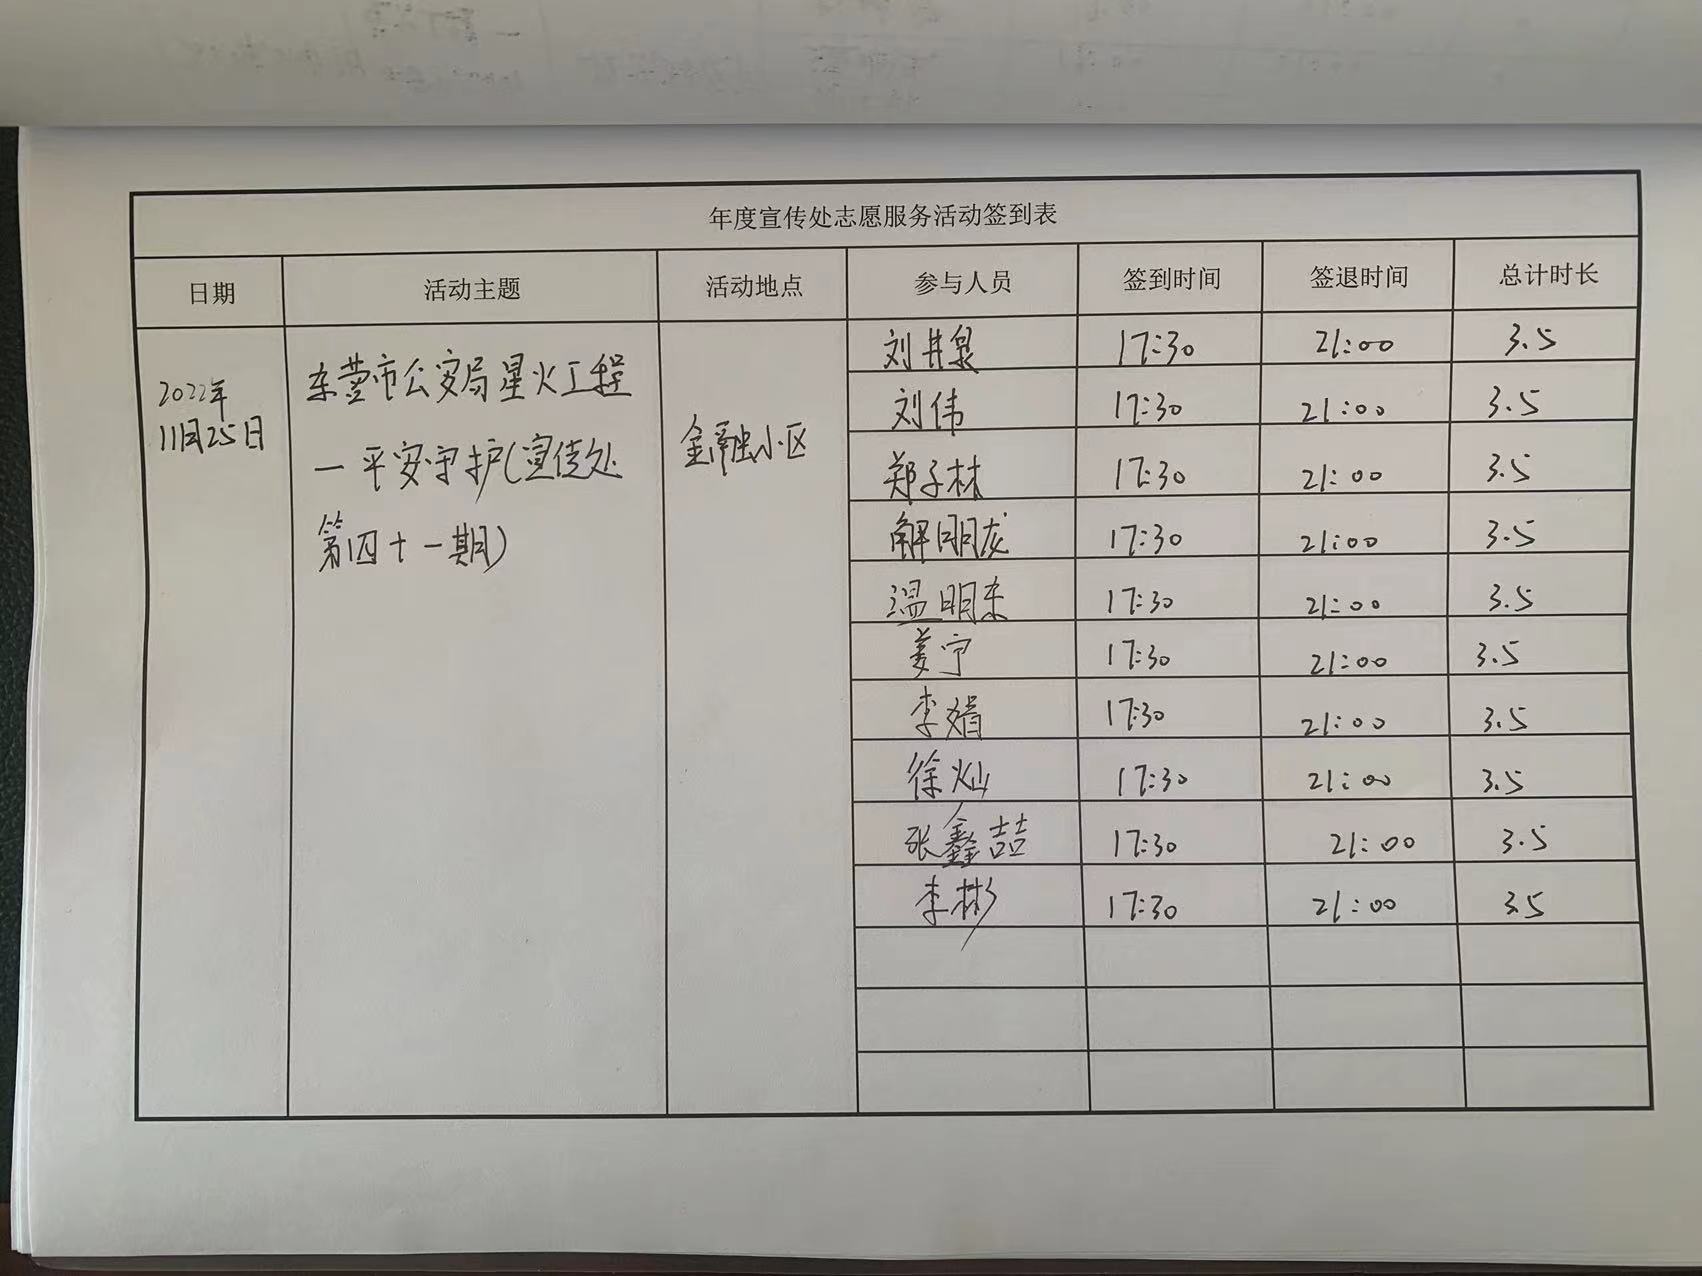 年度宣传处志愿服务活动签到表
日期 活动主题 活动地点 参与人员 签到时间 签退时间 总计时长
2022年
11月25日
东营市公安局星火工程
一平安守护(宣传处
第四十一期)
金融小区
刘井泉 17:30 21:00 3.5
刘伟 17:30 21:00 3.5
郑子林 17:30 21:00 3.5
解明龙 17:30 21:00 3.5
温明东 17:30 21:00 3.5
姜宁 17:30 21:00 3.5
李娟 17:30 21:00 3.5
徐灿 17:30 21:00 3.5
张鑫喆 17:30 21:00 3.5
李彬 17:30 21:00 3.5